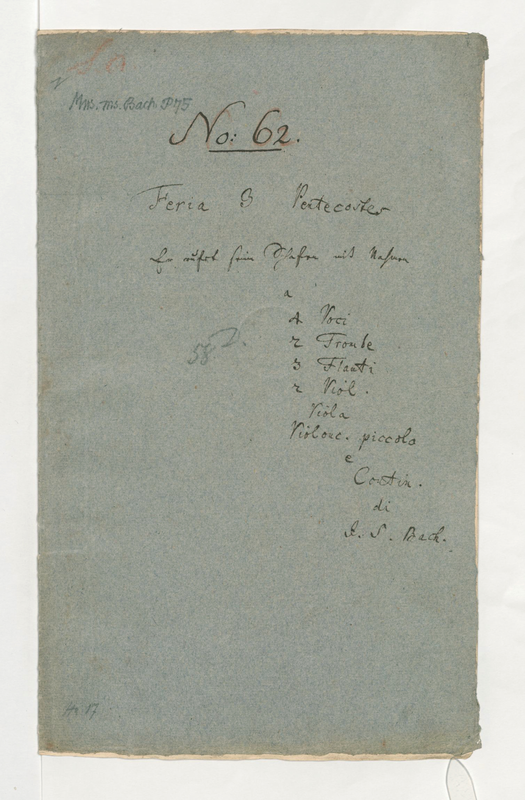 Mus. ms. Bach P 75
No: 62.
Feria 3 Pentecostes
Er rufet sein Schafen mit Nahmen
a
4 Voci
2 Trombe
3 Flauti
2 Viol.
Viola
Violonc. piccolo
e
Contin.
di
J. S. Bach.